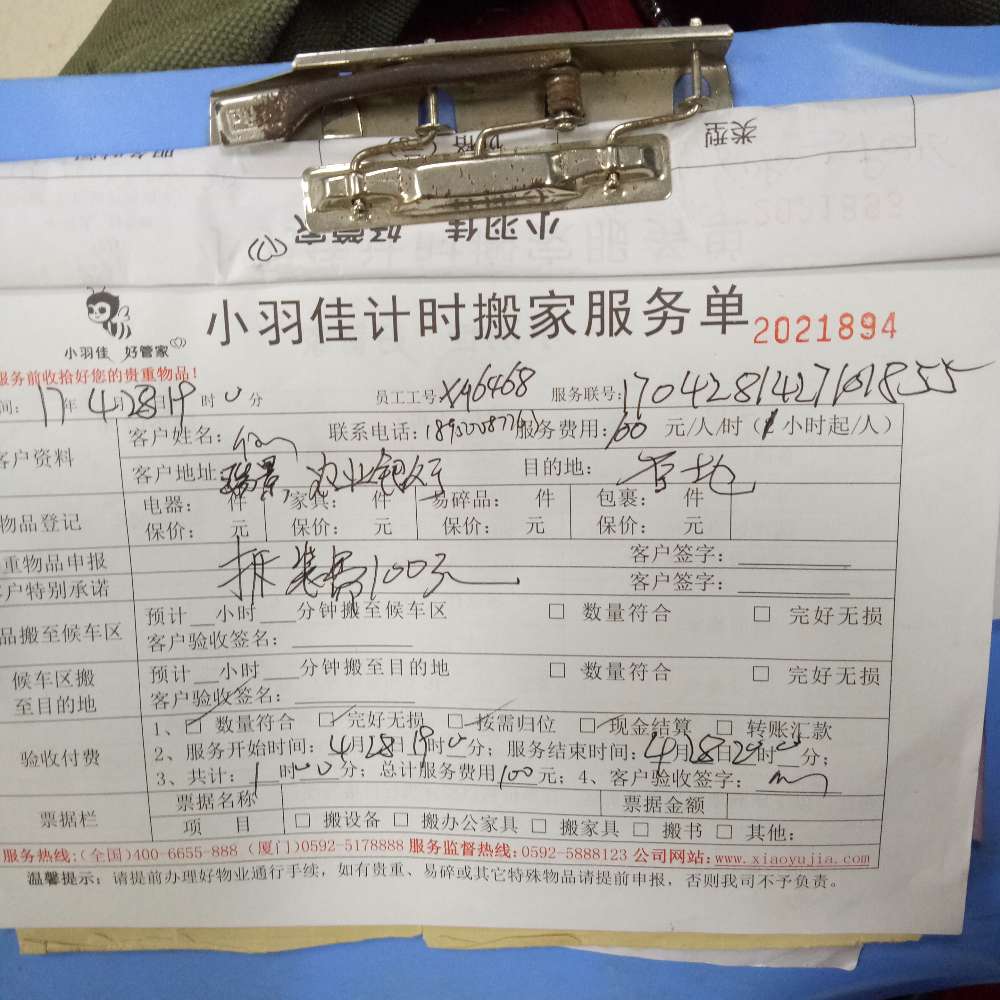 类型
小羽佳 好管家
小羽佳计时搬家服务单 2021894
小羽佳 好管家
服务前收拾好您的贵重物品!
间: 17年4月28日19时0分 员工工号: XM6468 服务联号:
客户资料 客户姓名: 联系电话: 服务费用:100元/人/时(1小时起/人)
客户地址: 瑞景 目的地: 当地
物品登记 电器: 件 家具: 件 易碎品: 件 包裹: 件
保价: 元 保价: 元 保价: 元 保价: 元
重物品申报 拆装费100元 客户签字:
客户特别承诺 客户签字:
品搬至候车区 预计__小时___分钟搬至候车区 □ 数量符合 □ 完好无损
客户验收签名:
候车区搬至目的地 预计__小时___分钟搬至目的地 □ 数量符合 □ 完好无损
客户验收签名:
验收付费 1、□ 数量符合 □ 完好无损 □ 按需归位 □ 现金结算 □ 转账汇款
2、服务开始时间: 4月28日19时0分; 服务结束时间: 4月28日20时0分;
3、共计: 1时00分; 总计服务费用100元; 4、客户验收签字:
票据栏 票据名称 票据金额
项 目 □ 搬设备 □ 搬办公家具 □ 搬家具 □ 搬书 □ 其他:
服务热线:(全国)400-6655-888 (厦门)0592-5178888 服务监督热线:0592-5888123 公司网站:www.xiaoyujia.com
温馨提示: 请提前办理好物业通行手续, 如有贵重、易碎或其它特殊物品请提前申报, 否则我司不予负责。